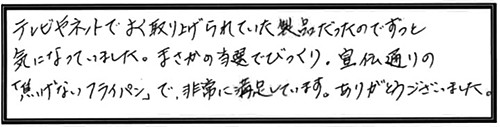 テレビやネットでよく取り上げられていた製品だったのでずっと
気になっていました。まさかの当選でびっくり。宣伝通りの
「焦げないフライパン」で、非常に満足しています。ありがとうございました。